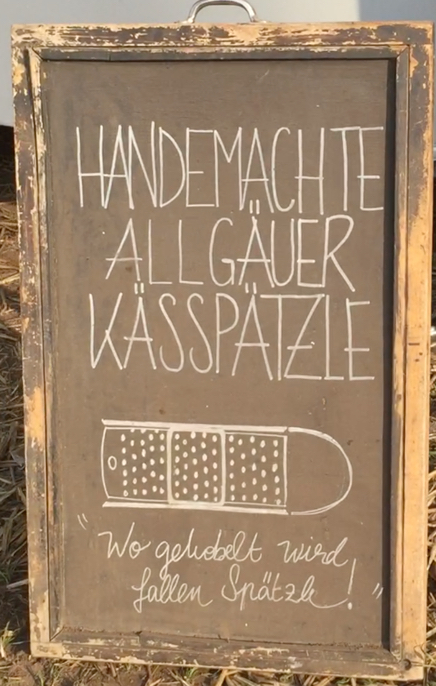 HANDEMACHTE
ALLGÄUER
KÄSSPÄTZLE
"Wo gehobelt wird,
fallen Spätzle!"